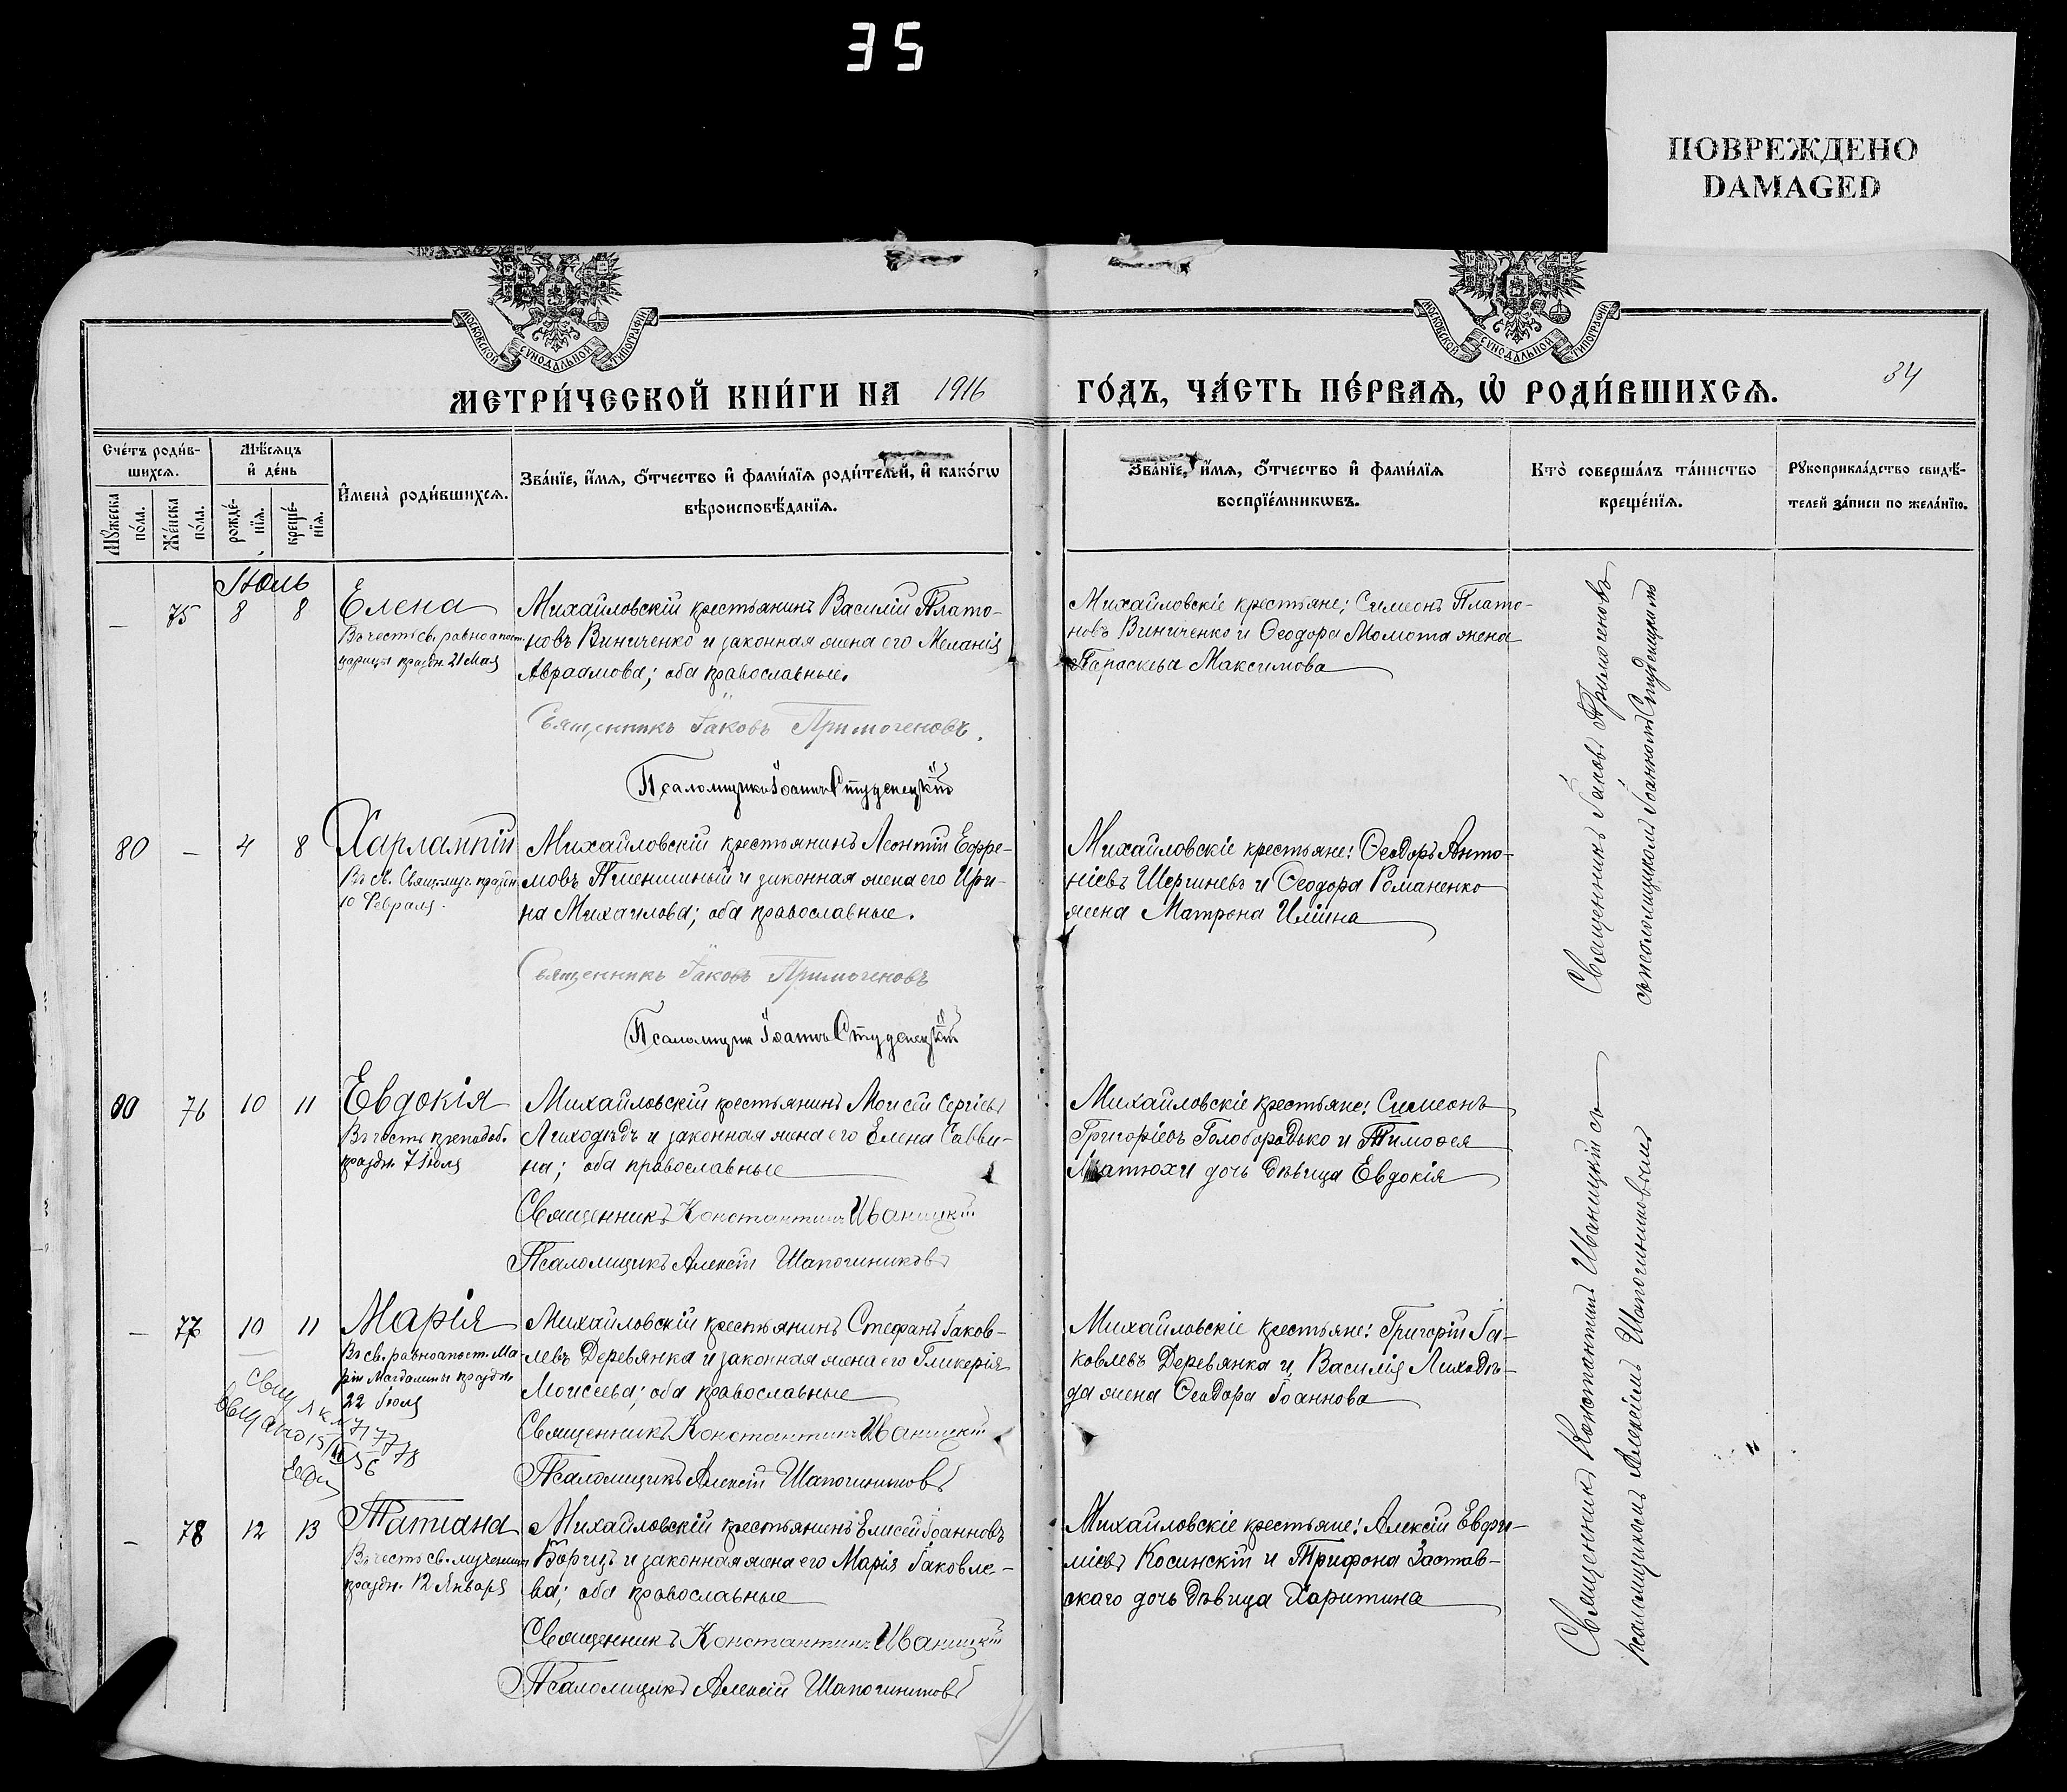 35
ПОВРЕЖДЕНО
DAMAGED
МОСКОВСКОЙ СѴНОДАЛЬНОЙ ТИПОГРАФІИ
МОСКОВСКОЙ СѴНОДАЛЬНОЙ ТИПОГРАФІИ
МЕТРИ́ЧЕСКОЙ КНИ́ГИ НА 1916 ГО́ДЪ, ЧА́СТЬ ПЕ́РВАѦ, Ѡ҆ РОДИ́ВШИХСѦ.
34
Сче́тъ роди́в-
шихсѧ.
Мꙋ́жеска по́ла.
Же́нска по́ла.
Мѣ́сѧцъ
и҆ де́нь
рожде́-
нїѧ.
креще́-
нїѧ.
И҆мена̀ роди́вшихсѧ.
Зва́нїе, и҆́мѧ, ѻ҆́тчество и҆ фами́лїѧ роди́телей, и҆ како́гѡ
вѣроисповѣ́данїѧ.
Зва́нїе, и҆́мѧ, ѻ҆́тчество и҆ фами́лїѧ
воспрїе́мникѡвъ.
Кто̀ соверша́лъ та́инство
креще́нїѧ.
Рꙋкоприкла́дство свидѣ́-
телей за́писи по жела́нїю.
Іюль
— 75 8 8
Елена
Въ честь св. равноапост.
царицы праздн. 21 Мая
Михайловскій крестьянинъ Василій Плато-
новъ Виниченко и законная жена его Меланія
Авраамова; оба православные.
Священникъ Іаковъ Примогеновъ.
Псаломщикъ Іоаннъ Студенецкій
Михайловскіе крестьяне; Симеонъ Плато-
новъ Виниченко и Ѳеодора Момота жена
Параскева Максимова
80 — 4 8
Харлампій
Въ св. Свящ.муч. праздн.
10 Февраля.
Михайловскій крестьянинъ Леонтій Ефре-
мовъ Пшенишный и законная жена его Ири-
на Михаилова; оба православные.
Священникъ Іаковъ Примогеновъ
Псаломщик Іоаннъ Студенецкій
Михайловскіе крестьяне: Ѳеодоръ Анто-
ніевъ Шергиневъ и Ѳеодора Романенко
жена Матрона Иліина
Священникъ Іаковъ Примогеновъ
съ псаломщикомъ Іоанномъ Студенецкимъ
76 10 11
Евдокія
Въ честь преподоб.
праздн. 7 Іюля
Михайловскій крестьянинъ Моисей Сергіевъ
Лиходѣдъ и законная жена его Елена Савви-
на; оба православные
Священникъ Константинъ Иваницкій
Псаломщикъ Алексій Шапочниковъ
Михайловскіе крестьяне: Симеонъ
Григоріевъ Голобородько и Тимоѳея
Матюхи дочь дѣвица Евдокія
— 77 10 11
Марія
Въ св. равноапост. Ма-
ріи Магдалины праздн.
22 Іюля
Михайловскій крестьянинъ Стефанъ Іаков-
левъ Деревянка и законная жена его Гликерія
Моисеева; оба православные
Священникъ Константинъ Иваницкій
Псаломщикъ Алексій Шапочниковъ
Михайловскіе крестьяне: Григорій Іа-
ковлевъ Деревянка и Василія Лиходѣ-
да жена Ѳеодора Іоаннова
— 78 12 13
Татіана
Въ честь св. мученицы
праздн. 12 Января
Михайловскій крестьянинъ Елисей Іоанновъ
Борицъ и законная жена его Марія Іаковле-
ва; оба православные
Священникъ Константинъ Иваницкій
Псаломщикъ Алексій Шапочниковъ
Михайловскіе крестьяне: Алексій Евфи-
міевъ Косинскій и Трифона Застав-
скаго дочь дѣвица Харитина
Священникъ Константинъ Иваницкій съ
псаломщикомъ Алексіемъ Шапочниковымъ